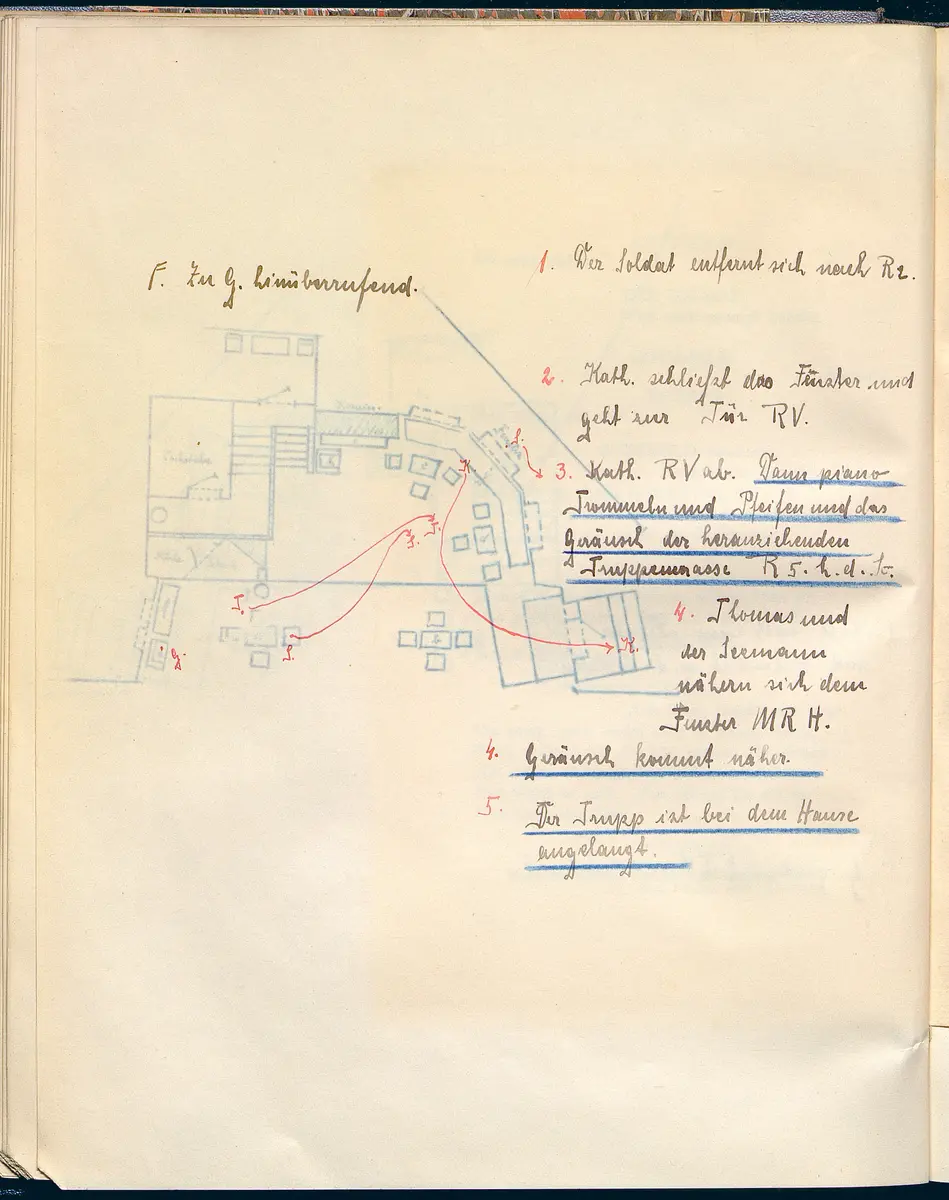 F. Zu G. hinüberrufend.
1. Der Soldat entfernt sich nach R2.
2. Kath. schließt das Fenster und
geht zur Tür RV.
3. Kath. RV ab. Dann piano
Trommeln und Pfeifen und das
Geräusch der heranziehenden
Truppenmasse R 5. h. d. B.
4. Thomas und
der Seemann
nähern sich dem
Fenster MRH.
4. Geräusch kommt näher.
5. Der Trupp ist bei dem Hause
angelangt.
S.
K
T.
S.
T.
S.
G.
K.